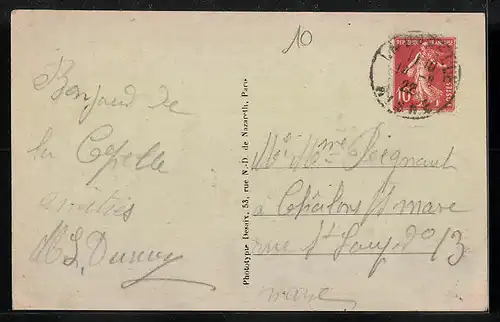 10
Bonjour de
la Capelle
amitiés
Phototypie Desaix, 53, rue N.-D. de Nazareth, Paris
REPUBLIQUE FRANÇAISE
10
POSTES
Mr Mme
à Châlons s/ marne
rue St Loup no 13
marne